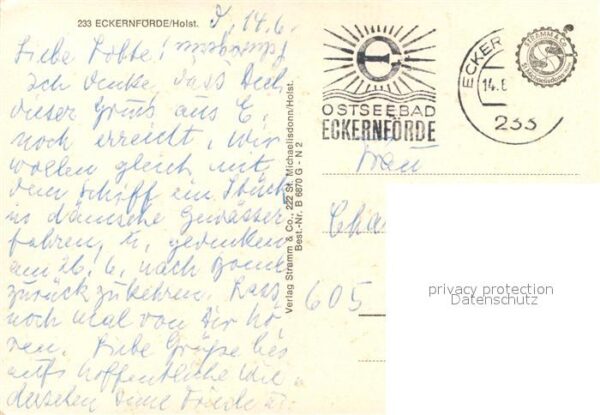 233 ECKERNFÖRDE/Holst.
14.6.
Liebe
Ich denke, dass Dich
dieser Gruss aus E.
noch erreicht, wir
wollen gleich mit
dem Schiff ein Stück
in dänische Gewässer
fahren, u. gedenken
am 26.6. nach
zurückzukehren. Lass
noch mal von Dir hö-
ren. Liebe Grüße bis
aufs hoffentliche Wie-
dersehen Deine
Verlag Stramm & Co., 222 St. Michaelisdonn/Holst.
Best.-Nr. B 6870 G - N 2
OSTSEEBAD
ECKERNFÖRDE
ECKER
14.6
233
STRAMM & Co.
St. Michaelisdonn
Frau
Cha
605
privacy protection
Datenschutz